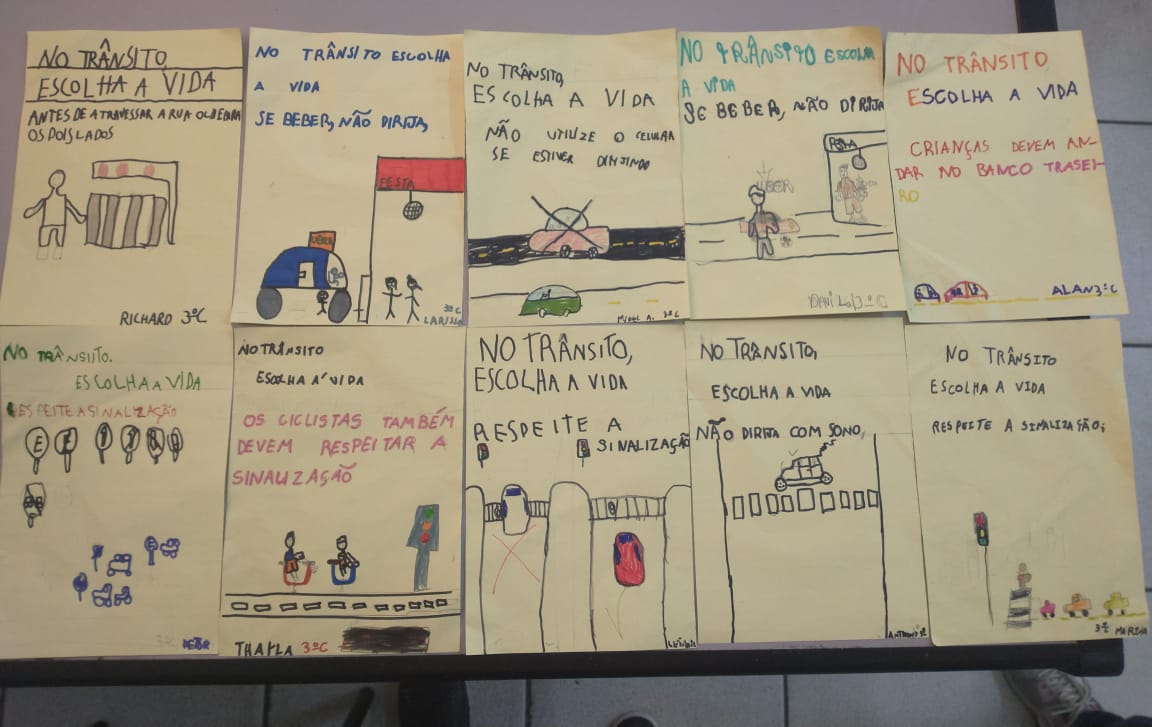 NO TRÂNSITO,
ESCOLHA A VIDA
ANTES DE ATRAVESSAR A RUA OLHE PRA
OS DOIS LADOS
RICHARD 3ºC
NO TRÂNSITO ESCOLHA
A VIDA
SE BEBER, NÃO DIRIJA,
FESTA
UBER
3ºC
NO TRÂNSITO,
ESCOLHA A VIDA
NÃO UTILIZE O CELULAR
SE ESTIVER DIRIJINDO
3ºC
NO TRÂNSITO ESCOLHA
A VIDA
SE BEBER, NÃO DIRIJA
UBER
3ºC
NO TRÂNSITO
ESCOLHA A VIDA
CRIANÇAS DEVEM AN-
DAR NO BANCO TRASEI-
RO
ALAN 3ºC
NO TRÂNSIITO.
ESCOLHA A VIDA
RESPEITE A SINALIZAÇÃO
NO TRÂNSITO
ESCOLHA A VIDA
OS CICLISTAS TAMBÉM
DEVEM RESPEITAR A
SINALIZAÇÃO
3ºC
NO TRÂNSITO,
ESCOLHA A VIDA
RESPEITE A
SINALIZAÇÃO
NO TRÂNSITO,
ESCOLHA A VIDA
NÃO DIRIJA COM SONO,
NO TRÂNSITO
ESCOLHA A VIDA
RESPEITE A SINALIZAÇÃO;
3ºC MARINA